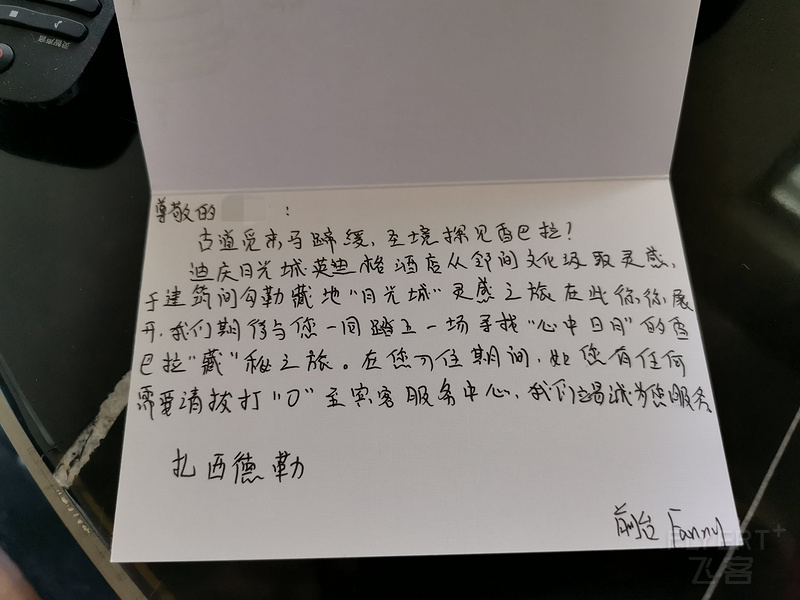 尊敬的 :
古道觅市马蹄缓,至境探见香巴拉!
迪庆月光城英迪格酒店从邻间文化汲取灵感,
于建筑间勾勒藏地"月光城"灵感之旅在此徐徐展
开,我们期待与您一同踏上一场寻找"心中日月"的香
巴拉"藏"秘之旅。在您入住期间,如您有任何
需要请拨打"0"至宾客服务中心,我们竭诚为您服务
扎西德勒
前台 Fanny
FLYERT+
飞客